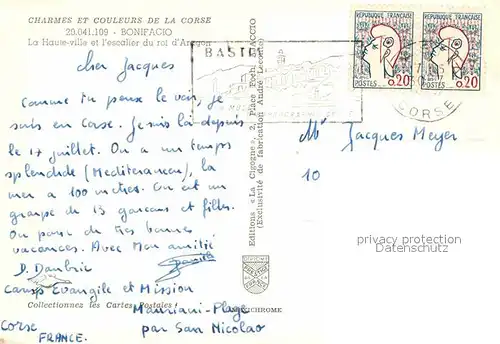 CHARMES ET COULEURS DE LA CORSE
20.041.109 - BONIFACIO
La Haute-ville et l'escalier du roi d'Aragon
cher Jacques
Comme tu peux le voir, je
suis en Corse. Je suis là depuis
le 17 juillet. On a un temps
splendide (Mediterranean), la
mer a 100 mètres. On est un
groupe de 13 garcons et filles.
On passe de tres bonnes
vacances. Avec mon amitié
D.
Camp Evangile et Mission
Collectionnez les Cartes Postales !
Moriani-Plage
par San Nicolao
Corse
FRANCE.
Editions « La Cigogne », 2, Place Foch, AJACCIO
(Exclusivité de fabrication André Leconte)
BASTIA
REPUBLIQUE FRANÇAISE
POSTES 0,20
REPUBLIQUE FRANÇAISE
POSTES 0,20
CORSE
Mr Jacques Meyer
10
privacy protection
Datenschutz